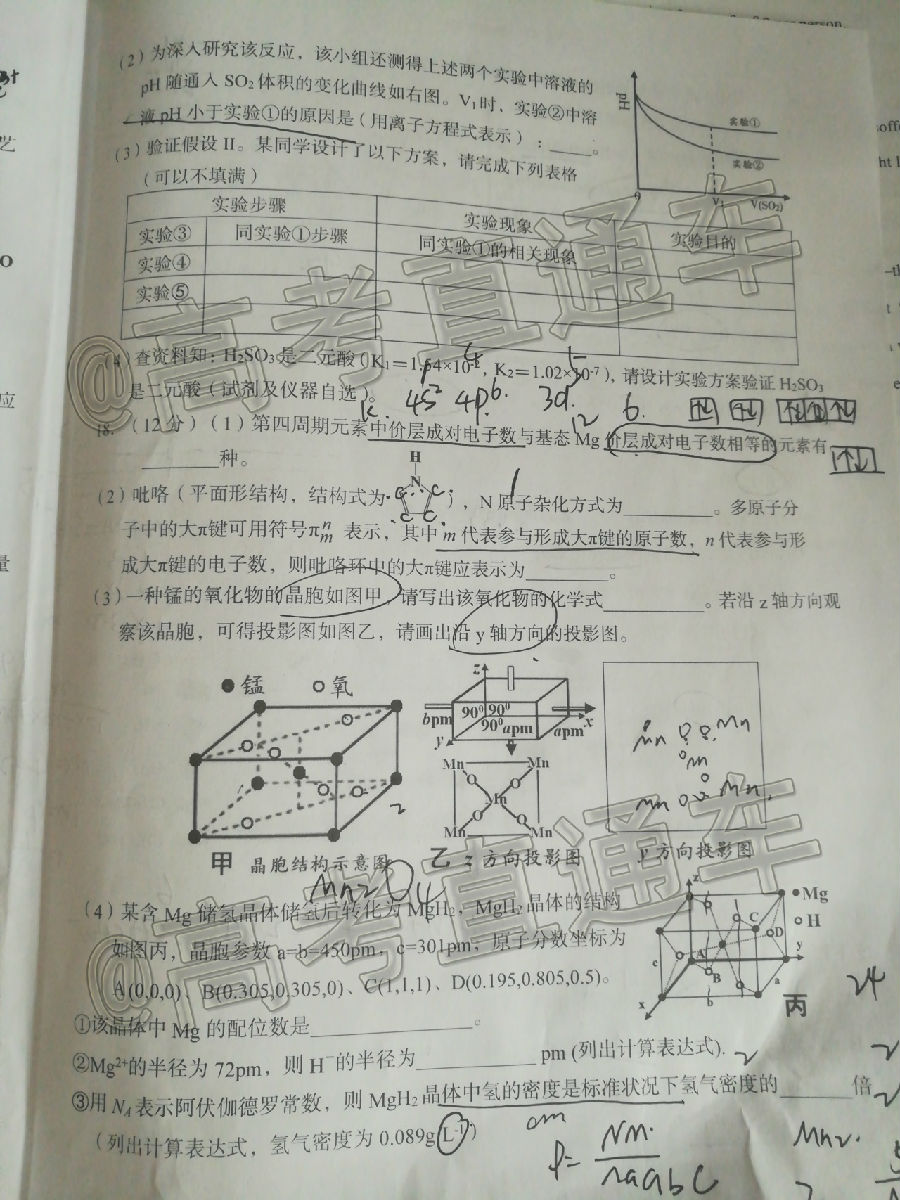 (2)为深入研究该反应，该小组还测得上述两个实验中溶液的
pH 随通入 SO₂ 体积的变化曲线如右图。V₁时，实验②中溶
液 pH 小于实验①的原因是（用离子方程式表示）：____。
pH
实验①
实验②
0
V₁
V(SO₂)
(3)验证假设 II。某同学设计了以下方案，请完成下列表格
（可以不填满）
实验步骤 实验现象 实验目的
实验③ 同实验①步骤 同实验①的相关现象
实验④
实验⑤
@高考直通车
(4)查资料知：H₂SO₃是二元酸（K₁=1.54×10⁻², K₂=1.02×10⁻⁷），请设计实验方案验证 H₂SO₃
是二元酸（试剂及仪器自选）。
K. 4S² 4P⁶. 3d
12 6.
18. (12分)(1)第四周期元素中价层成对电子数与基态 Mg 价层成对电子数相等的元素有
________种。
(2)吡咯（平面形结构，结构式为
H
N
C C
C C
），N 原子杂化方式为________。多原子分
子中的大π键可用符号πₘⁿ 表示，其中 m 代表参与形成大π键的原子数，n 代表参与形
成大π键的电子数，则吡咯环中的大π键应表示为________。
(3)一种锰的氧化物的晶胞如图甲，请写出该氧化物的化学式__________。若沿 z 轴方向观
察该晶胞，可得投影图如图乙，请画出沿 y 轴方向的投影图。
●锰 ○氧
z
bpm 90⁰ 90⁰
90⁰ apm apm x
y
Mn Mn
O O
Mn
O O
Mn Mn
Mn Mn
Mn
Mn Mn
甲 晶胞结构示意图
乙 z 方向投影图
y 方向投影图
Mn₂O₄
@高考直通车
(4)某含 Mg 储氢晶体储氢后转化为 MgH₂，MgH₂ 晶体的结构
如图丙，晶胞参数 a=b=450pm，c=301pm，原子分数坐标为
A(0,0,0)、B(0.305,0.305,0)、C(1,1,1)、D(0.195,0.805,0.5)。
z
●Mg
○H
C
D
A
B
y
c
x
b
a
丙
24
①该晶体中 Mg 的配位数是________________。
②Mg²⁺的半径为 72pm，则 H⁻的半径为____________pm (列出计算表达式).
③用 Nᴀ 表示阿伏伽德罗常数，则 MgH₂ 晶体中氢的密度是标准状况下氢气密度的_______倍
（列出计算表达式，氢气密度为 0.089g·L⁻¹）